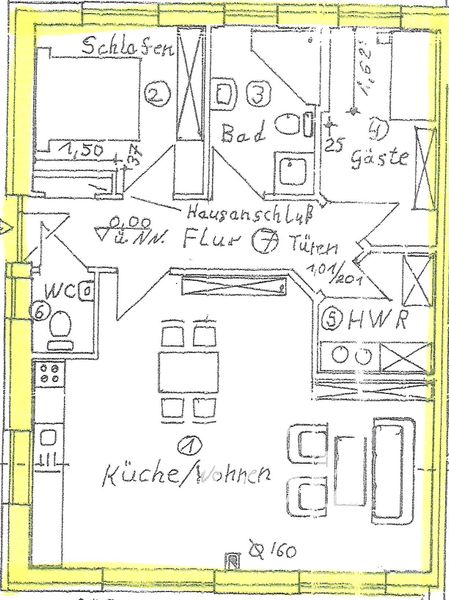 Schlafen
2
3
Bad
1,62⁵
4
Gäste
25
1,50
37
Hausanschluß
0,00
ü. NN.
Flur 7 Türen
1,01/2,01
WC
6
5 HWR
1
Küche/Wohnen
Ø 160